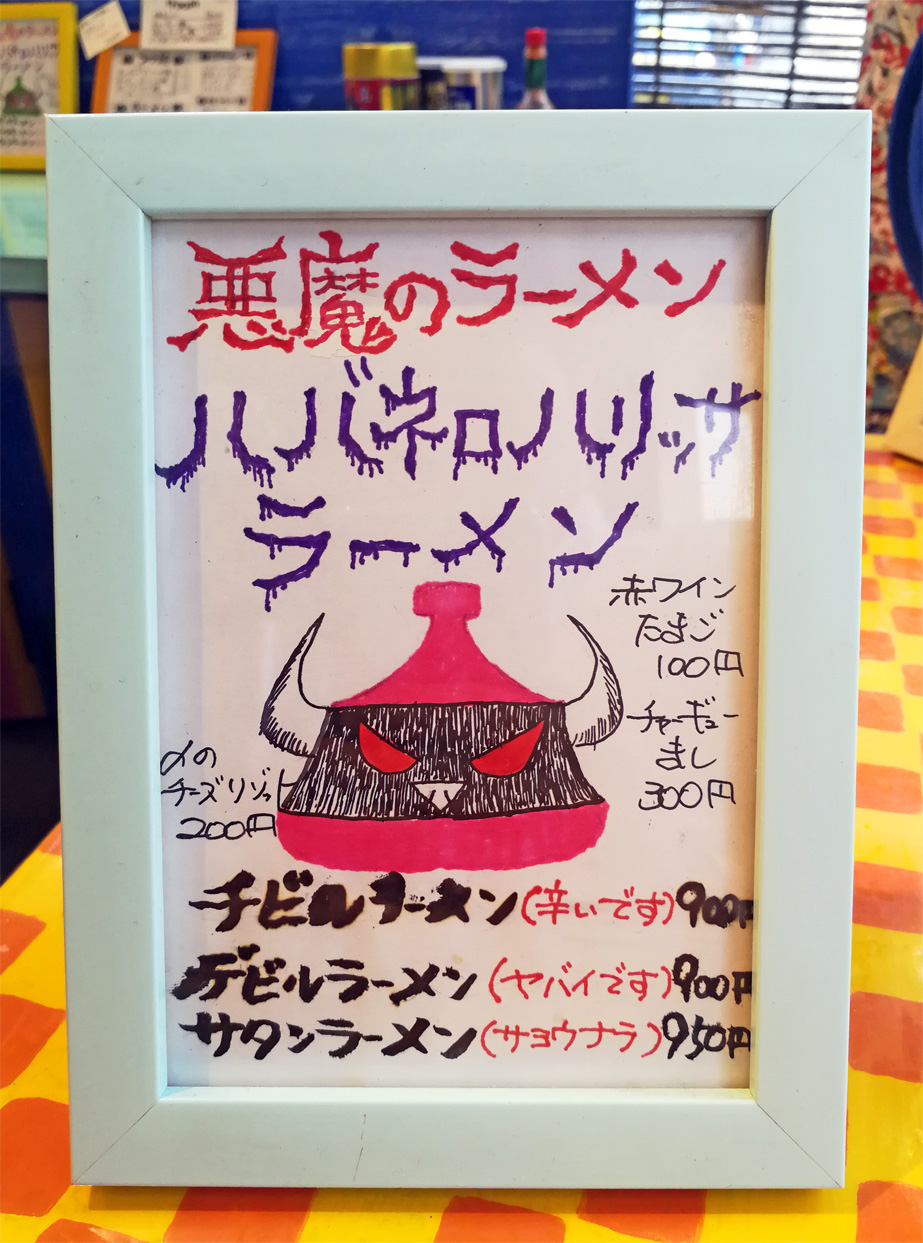 悪魔のラーメン
ハバネロハリッサ
ラーメン
赤ワイン
たまご
100円
チャーギュー
まし
300円
〆の
チーズリゾット
200円
チビルラーメン(辛いです)900円
デビルラーメン(ヤバイです)900円
サタンラーメン(サヨウナラ)950円